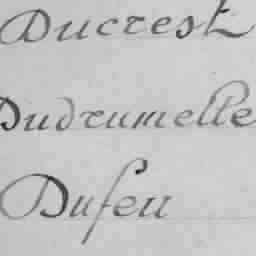 Ducrest
Dudrumelle
Dufeu